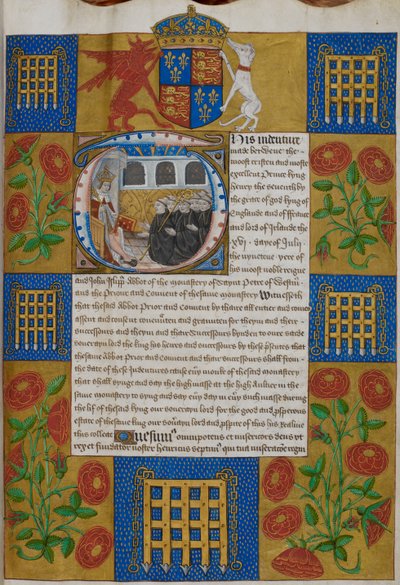 This indenture
made betwene the
moost cristen and moost
excellent Prince kyng
henry the seventh by
the grace of god kyng of
Englande and of ffraunce
and lord of Irlande the
xvj daye of July
the nynetene yere of
his moost noble reigne
and John Islipp Abbot of the monastery of Saynt Petre of Westm
and the Priour and Convent of the same monastery Witnesseth
that the said Abbot Priour and Convent by thaire all entier and
assent and consent covenanten and graunten for theym and their
successours and theym and thair successours bynden to oure said
soverayn lord the king his heires and successours by these presentes that
the same Abbot Priour and Convent and their successours shall from
the date of these Indentures cause every monk of the said monastery
that shall synge and say the high masse at the high Aulter in the
same monastery to synge and say every day in every such masse during
the lif of the said kyng our soverayn lord for the good and prosperous
estate of the same king our soverayn lord and prosperite of this his Realme
this collecte Quesumus omnipotens et misericors deus ut
rex et fundator noster henricus septimus qui tua miseratione regni